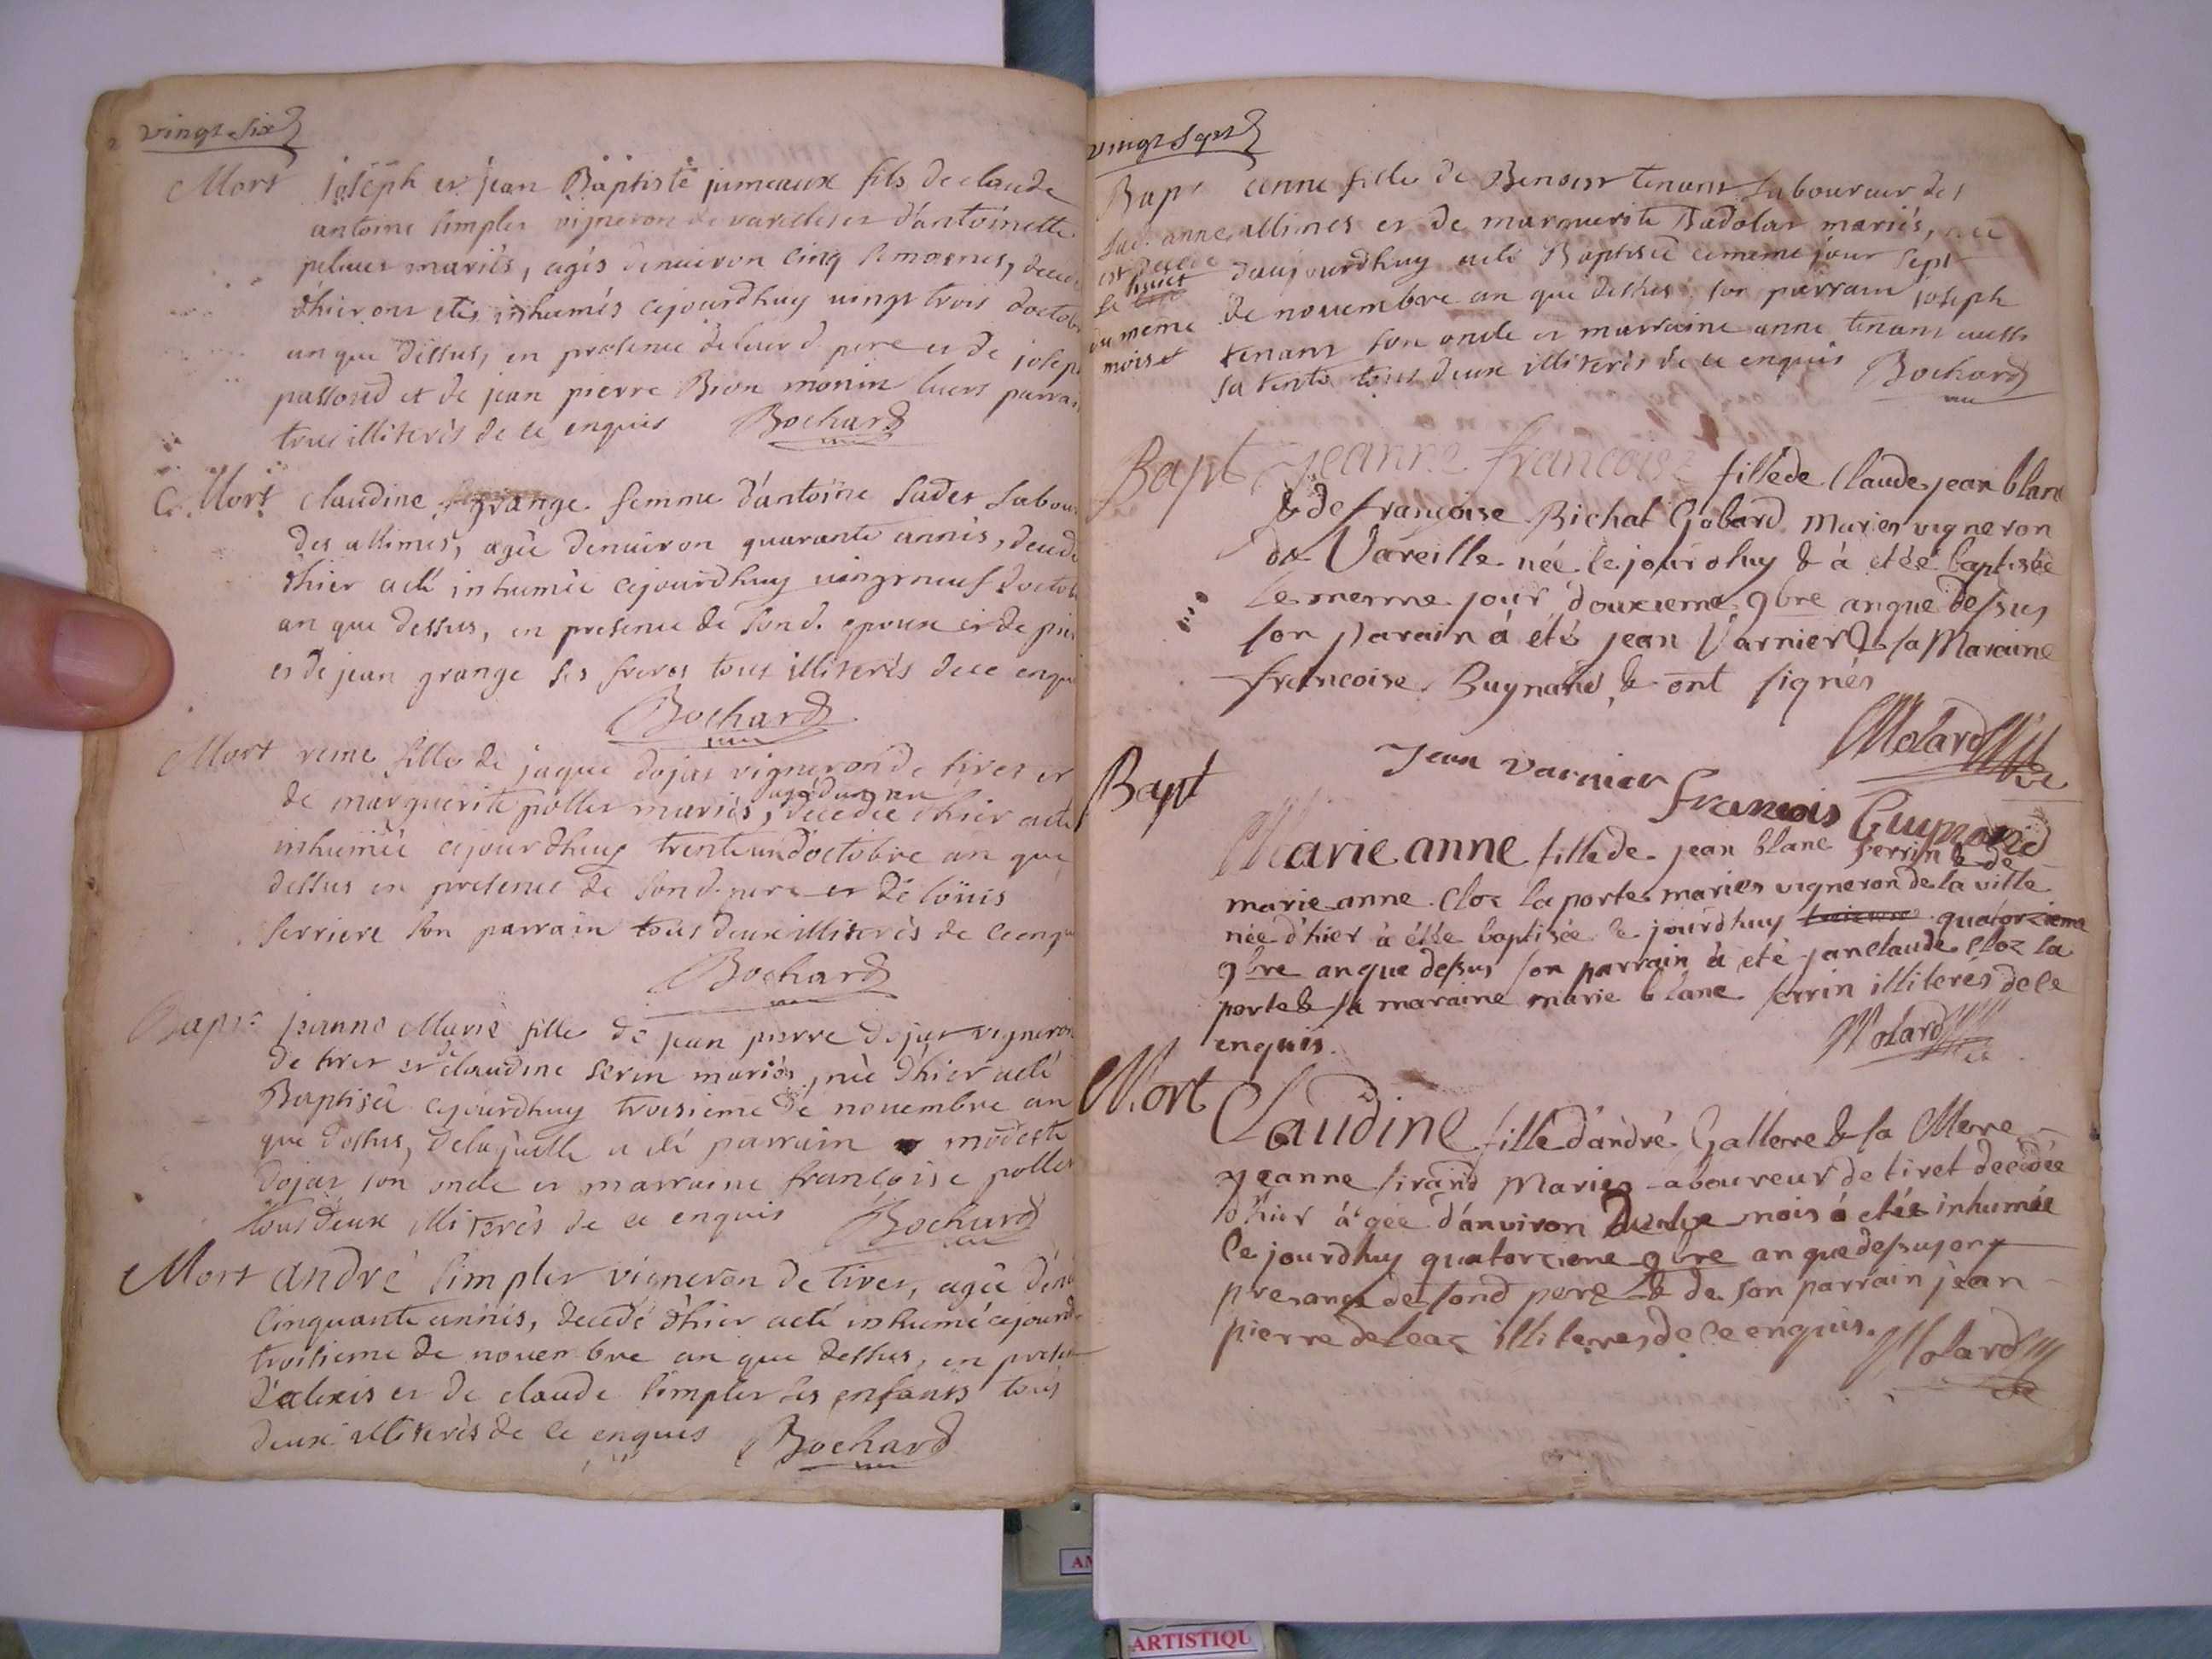 vingt six
Mort joseph et jean Baptiste jumeaux fils de claude
antoine simplet vigneron de vareilles et d'antoinette
mariés, agés denuiron cinq semaenes,
d'hier ont etés inhumés cejourdhuy uingt trois doctob
an que dessus, en presence de leur d. pere et de josep
passoud et de jean pierre Bion monin luers parrai
tous illiterés de ce enquis Bochard
Mort claudine grange femme d'antoine Labou
des allimes, agée denuiron quarante années, decede
d'hier a eté inhumée cejourdhuy uingt neuf doctob
an que dessus, en presence de son d. epoux et de pie
et de jean grange ses freres tous illiterés de ce enqu
Bochard
Mort reine fille de jaque dojat vigneron de tiret et
de marguerite pollet mariés, decedée d'hier a eté
inhumée cejourdhuy trente un d'octobre an que
dessus en presence de son d. pere et de loüis
ferriere son parrain tous deux illiterés de ce enqu
Bochard
Bapt jeanne Marie fille de jean pierre dojat vigneron
de tiret et de claudine serin mariés, née d'hier a eté
Baptisée cejourdhuy troisieme de nouembre an
que dessus, de laquelle a eté parrain modeste
dojat son oncle et marraine françoise pollet
tous deux illiterés de ce enquis Bochard
Mort andré simplet vigneron de tiret, agée denu
cinquante années, decedé d'hier a eté inhumé cejourd
troisieme de nouembre an que dessus, en prese
d'alexis et de claude simplet ses enfants tous
deux illiterés de ce enquis Bochard
vingt sept
Bapt anne fille de Benoist tenant Laboureur des
allimes et de marguerite Badolat mariés, née
daujourdhuy a eté Baptisée ce meme jour sept
de nouembre an que dessus, son parrain joseph
tenant son oncle et marraine anne tenant aussi
sa tente tous deux illiterés de ce enquis Bochard
lad. anne
est decedé
le huict
du meme
mois
Bapt jeanne francoise fille de Claude jean blanc
& de françoise Richat Gobard Maries vigneron
de Vareille née le jourdhuy & à etée baptisée
le meme jour douxieme 9bre an que dessus
son parain à été jean Varnier & sa Maraine
francoise Buynand, & ont signés
Molard
Jean varnier
francois Guynand
Bapt
Marie anne fille de jean blanc ferrin & de
marie anne Cloz la porte maries vigneron de la ville
née d'hier à étée baptisée le jourdhuy quatorzieme
9bre an que dessus son parrain à eté jan claude cloz la
porte & sa maraine marie blanc ferrin illiterés de ce
enquis. Molard
Mort Claudine fille d'andré Gallere & sa Mere
jeanne sirand Maries laboureur de tiret decedée
d'hier à'gée d'anviron mois à etée inhumée
le jourdhuy quatorzieme 9bre an que dessus en
presance de sond pere & de son parrain jean
pierre deleaz illiteres de ce enquis. Molard
ARTISTIQU